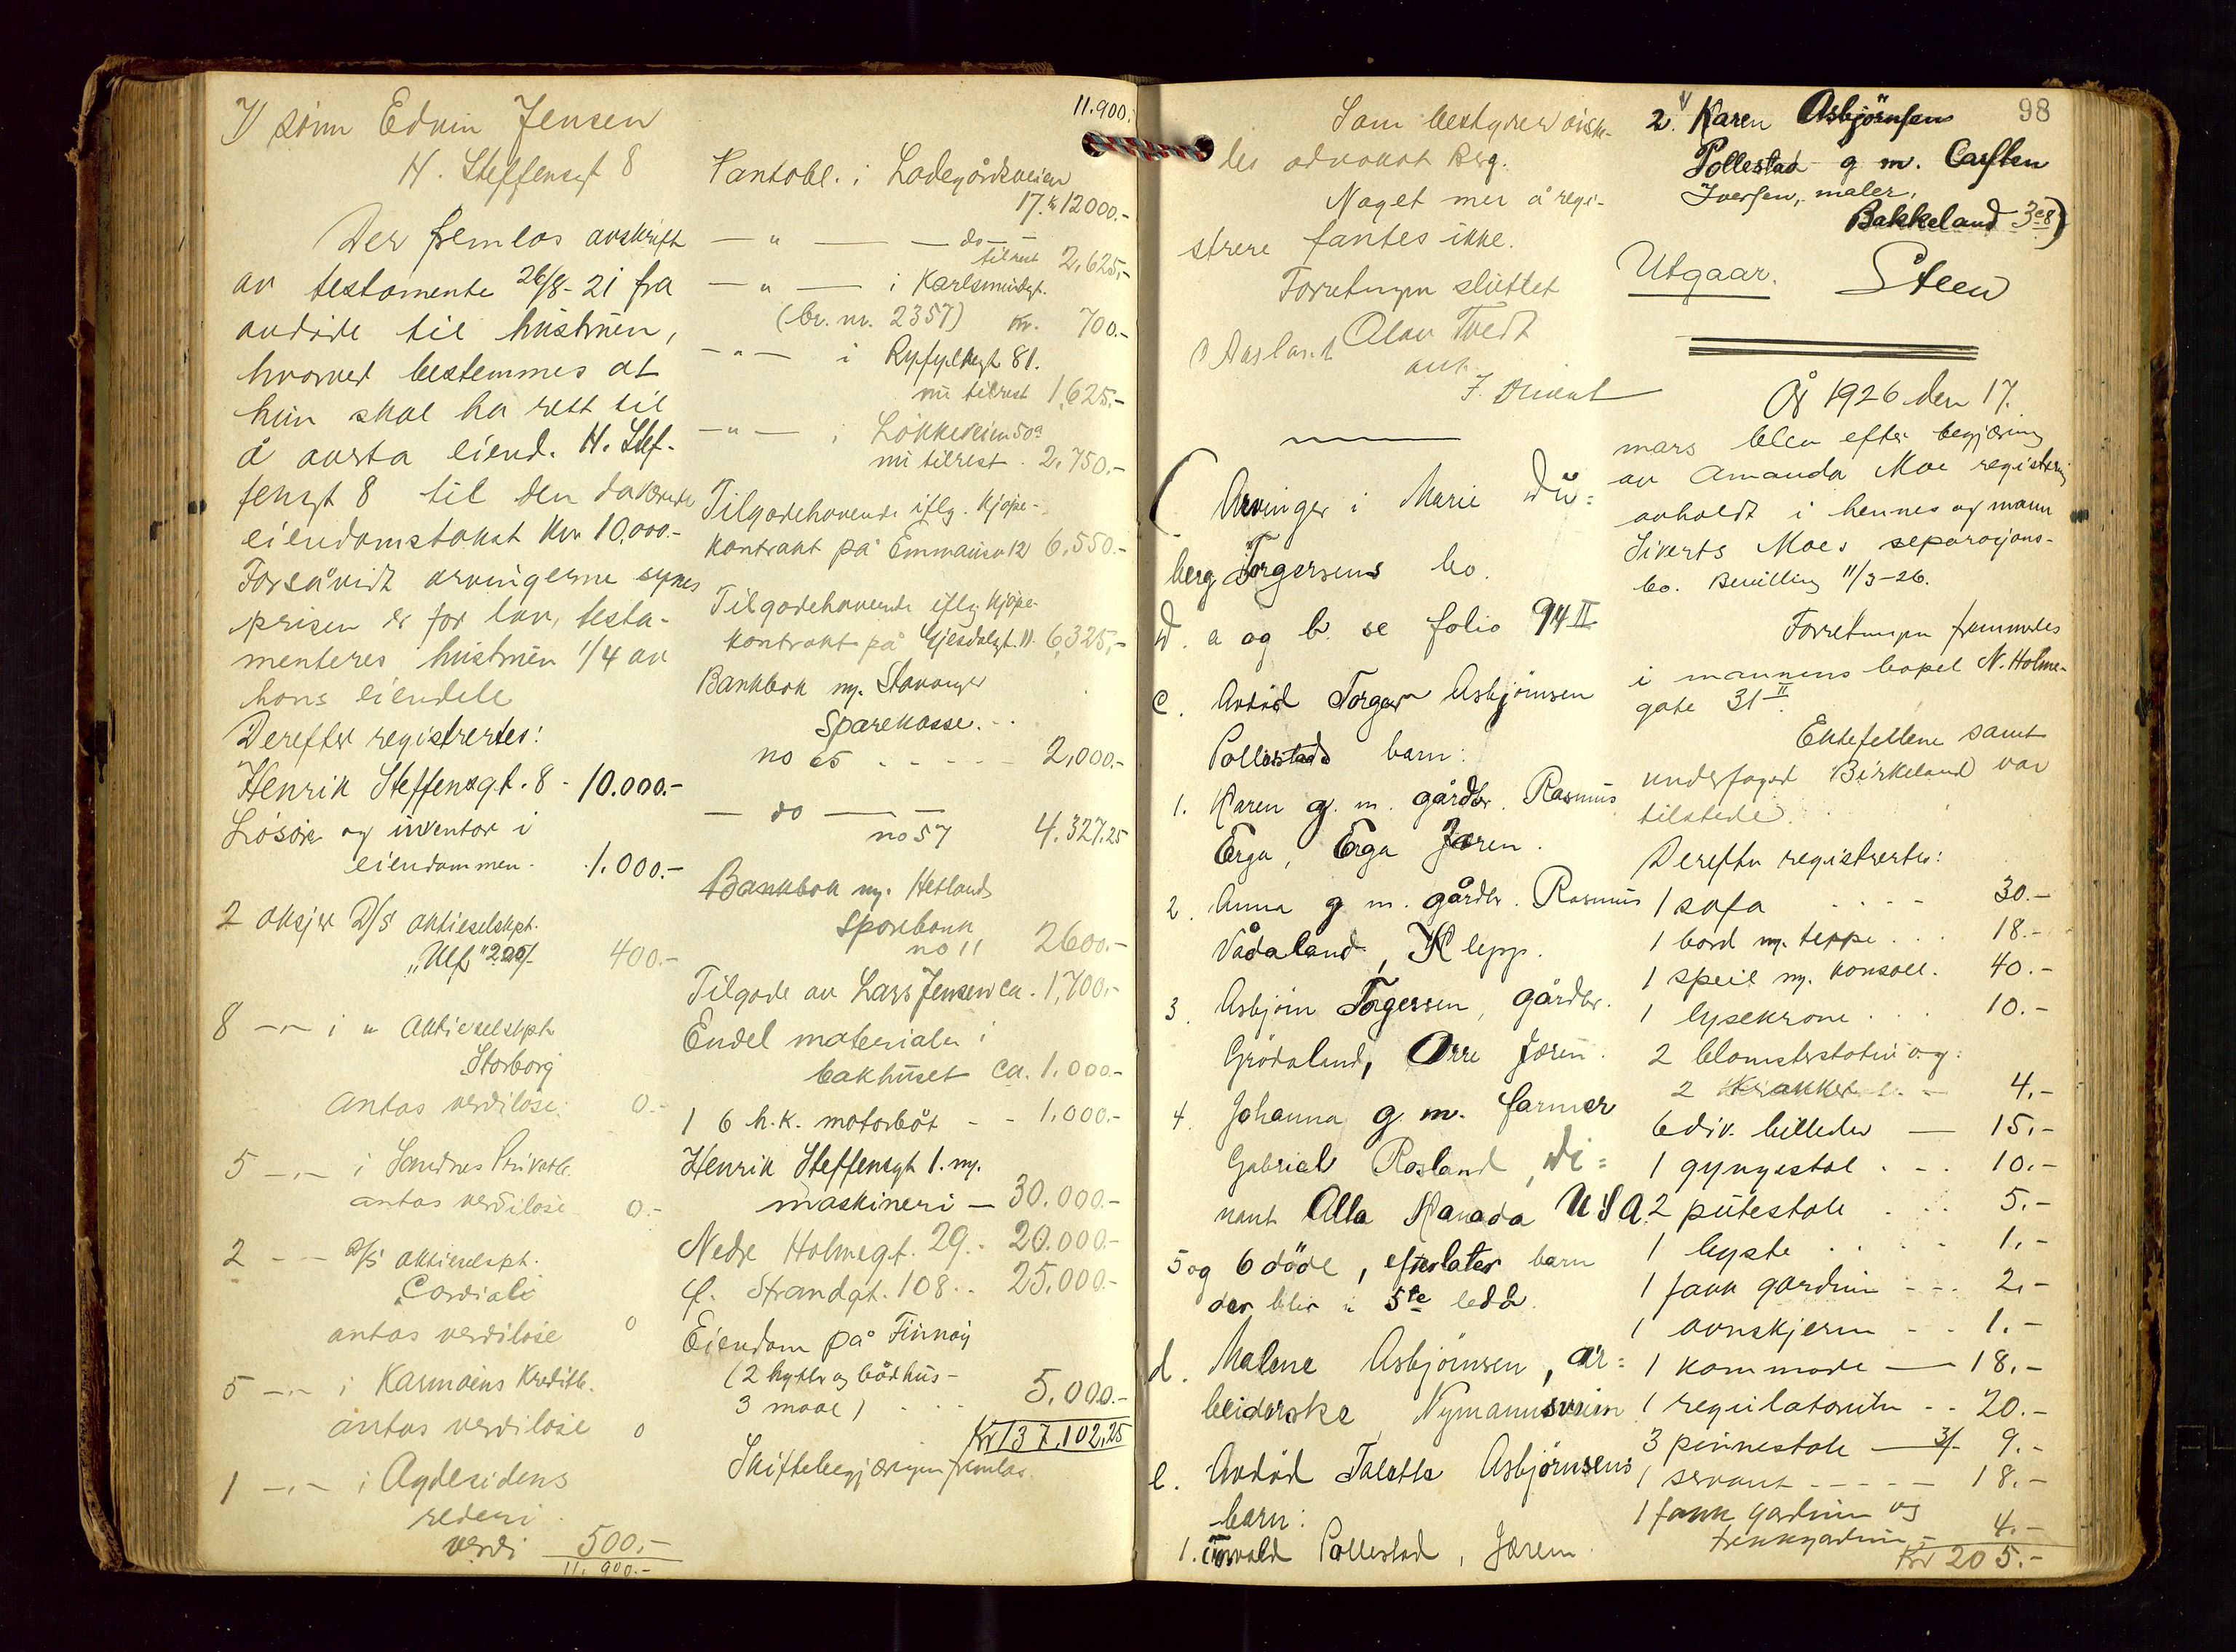 7) sønn Edvin Jensen
H. Steffensgt 8
Der fremlas avskrift
av testamente 26/8-21 fra
avdöde til hustruen,
hvorved bestemmes at
hun skal ha rett til
å overta eiend. H. Stef-
fensgt 8 til den daværende
eiendomstakst kr. 10,000.-
Forsåvidt arvingerne synes
prisen er for lav, testa-
menteres hustruen 1/4 av
hans eiendele
Derefter registrertes:
Henrik Steffensgt. 8 - 10.000.-
Lösöre og inventar i
eiendommen - 1.000.-
2 aksjer D/S aktieselskpt.
"Ulf" 200/- 400.-
8 -"- i " Aktieselskpt.
Storborg
antas verdilöse. 0.-
5 -"- i Sandnes Privatb.
antas verdilöse 0.-
2 - - D/S aktieselskpt.
"Cordiali
antas verdilöse 0
5 -"- i Karmöens Kreditb.
antas verdilöse 0
1 -"- i Agdesidens
rederi
verdi 500.-
11.900.-
11.900.
Pantobl. i Ladegårdsveien
17. kr 12000.-
- " - - do -
tilrest 2,625,-
- " - i Karlsmindegt.
(br. nr. 2357) kr. 700.-
- " - i Ryfylkegt 81.
nu tilrest 1,625.-
- " - i Lökkeveien 50a
nu tilrest. 2,750.-
Tilgodehavende iflg. kjøpe-
kontrakt på Emmausv 12 6,550.-
Tilgodehavende iflg kjøpe-
kontrakt på Gjesdalgt. 11. 6,325,-
Bankbok m/. Stavanger
Sparekasse.
no 65 - - - - - 2,000.-
- do -
no 57 4.327.25
Bankbok m/. Hetlands
Sparebank
no 11 2600.-
Tilgode av Lars Jensen ca. 1,700.-
Endel materialer i
bakhuset ca. 1.000.-
1 6 h.k. motorbåt - - 1.000.-
Henrik Steffensgt 1. m/.
maskineri - 30.000.-
Nedre Holmegt. 29. - 20.000.-
Ö. Strandgt. 108.. 25.000.-
Eiendom på Finnöy
(2 hytter og bådhus -
3 maal) 5.000.-
Kr 137.102,25
Skiftebegjæringen fremlas.
Som bestyrer önske-
des advokat Berg.
Noget mer å regi-
strere fantes ikke.
Forretningen sluttet
O Aasland Olav Tvedt
ass.
(Arvinger i Marie Du=
berg Torgersens bo.
a og b. se folio 94 II
c. Avdöd Torger Asbjörnsen
Pollestads barn:
1. Karen g. m. gårdbr. Rasmus
Erga, Erga Jæren.
2. Anna g m. gårdbr. Rasmus
Vådaland, Klepp.
3. Asbjörn Torgersen, gårdbr.
Grödaland, Orre Jæren.
4. Johanna g. m. farmer
Gabriel Rosland, Wi=
nant Alta Kanada U S A.
5 og 6 döde, efterlater barn
der blir i 5te ledd.
d. Malene Asbjörnsen, ar=
beiderske Nymannsveien
e. Avdöd Taletta Asbjörnsens
barn:
1. Osvald Pollestad, Jæren.
98
2. Karen Asbjörnsen
Pollestad g m. Carsten
Iversen, maler,
Bakkeland 3e8)
Utgaar. Steen
År 1926 den 17.
mars blev efter begjæring
av Amanda Moe registrering
avholdt i hennes og mann
Siverts Moes separasjons-
bo. Bevilling 11/3-26.
Forretningen fremmedes
i mannens bopel N. Holme-
gate 31 II.
Ektefellene samt
underfoged Birkeland var
tilstede.
Derefter registrertes:
1 sofa - - - - 30.-
1 bord m/. teppe . . . 18.-
1 speil m/. konsoll. 40.-
1 lysekrone . . . 10.-
2 blomsterstativ og
2 krakker - 4.-
6 div. billeder - 15.-
1 gyngestol . - . 10.-
2 putestole . . . 5.-
1 lyste . . . - 1.-
1 fakk gardiner - - - 2.-
1 ovnskjerm - - - 1.-
1 kommode - 18.-
1 regulatorur - - 20.-
3 pinnestole - 3/- 9.-
1 servant - - - - - 18.-
1 fakk gardiner og
trekkgardiner - 4.-
Kr 205.-